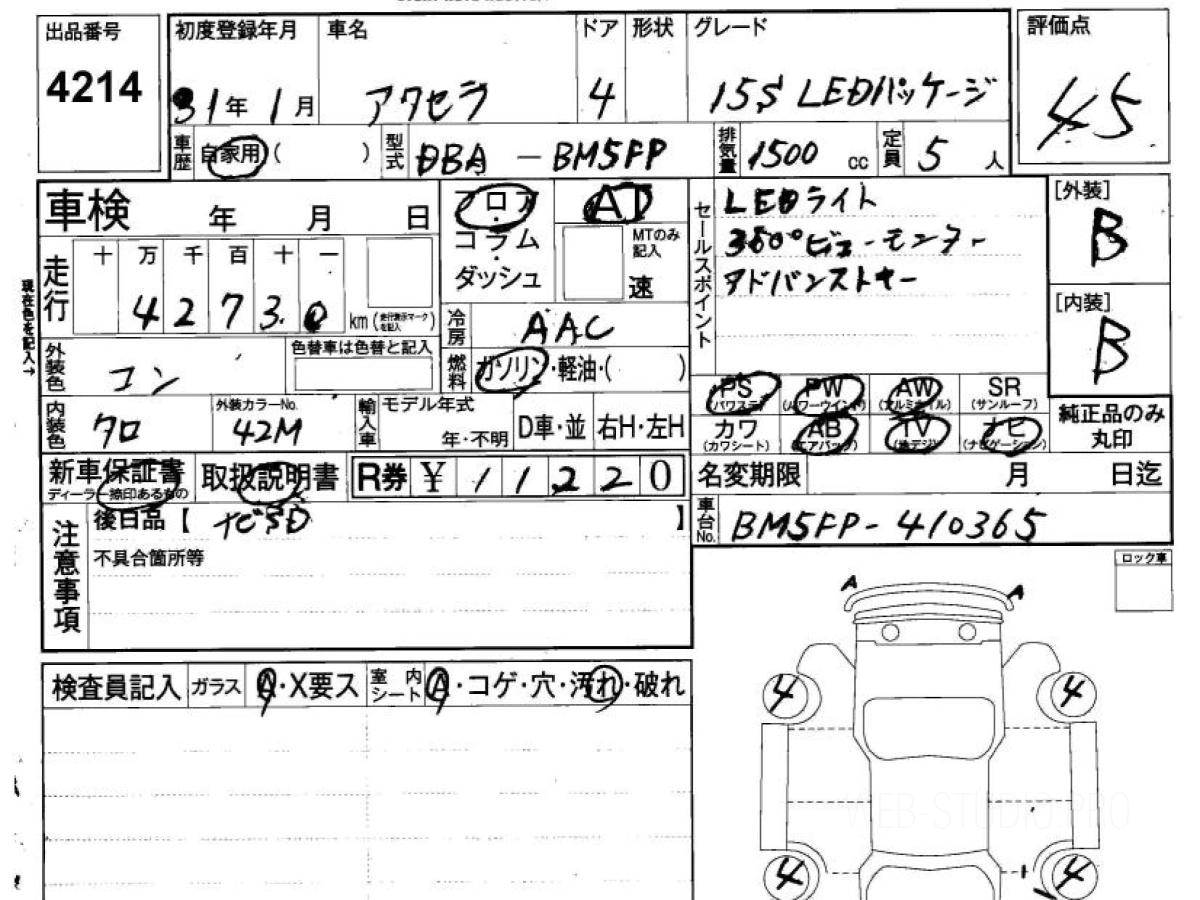 出品番号 初度登録年月 車名 ドア 形状 グレード 評価点
4214 31年 1月 アクセラ 4 15S LEDパッケージ 45
車歴 自家用 ( ) 型式 DBA - BM5FP 排気量 1500 cc 定員 5 人
車検 年 月 日 フロア・コラム・ダッシュ AT セールスポイント LEDライト [外装]
MTのみ記入 速 360°ビューモニター B
走行 十 万 千 百 十 一 アドバンストキー
4 2 7 3. 0 km (走行表示マークを記入) [内装]
現在色を記入→ 冷房 AAC B
外装色 コン 色替車は色替と記入 燃料 ガソリン・軽油・( )
PS (パワステ) PW (パワーウインド) AW (アルミホイル) SR (サンルーフ)
内装色 クロ 外装カラーNo. 42M 輸入車 モデル年式 年・不明 D車・並 右H・左H
カワ (カワシート) AB (エアバッグ) TV (地デジ) ナビ (ナビゲーション) 純正品のみ丸印
新車保証書 ディーラー捺印あるもの 取扱説明書 R券 ¥ 1 1 2 2 0 名変期限 月 日迄
注意事項 後日品【 ナビSD 】 車台No. BM5FP-410365
不具合箇所等
ロック車
A A
検査員記入 ガラス A・X要ス 室内シート A・コゲ・穴・汚れ・破れ
4 4
WEB-STUDIO.PRO
4 4